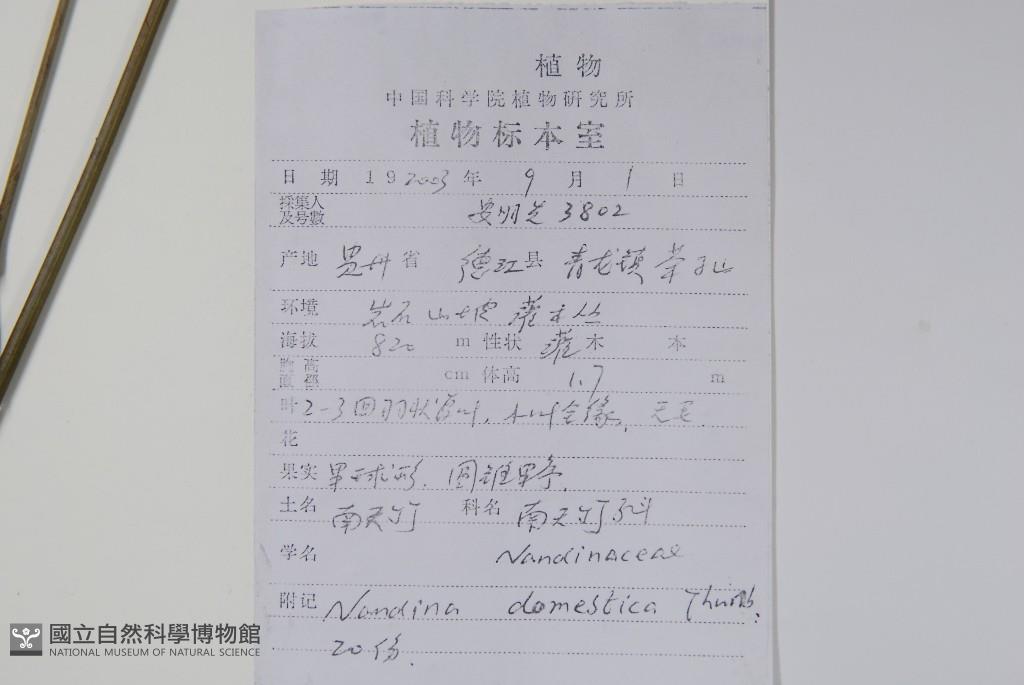 植物
中国科学院植物研究所
植物标本室
日 期 19 2003 年 9 月 1 日
採集人 及号數 安明态 3802
产地 贵州 省 德江 县 青龙镇
环境 岩石山坡灌木丛
海拔 820 m 性状 灌木 本
胸高 直径 cm 体高 1.7 m
叶 2-3回羽状复叶, 小叶全缘, 无毛.
花
果实 果球形. 圆锥果序.
土名 南天竹 科名 南天竹科
学名 Nandinaceae
附记 Nandina domestica Thunb.
20份.
國立自然科學博物館
NATIONAL MUSEUM OF NATURAL SCIENCE